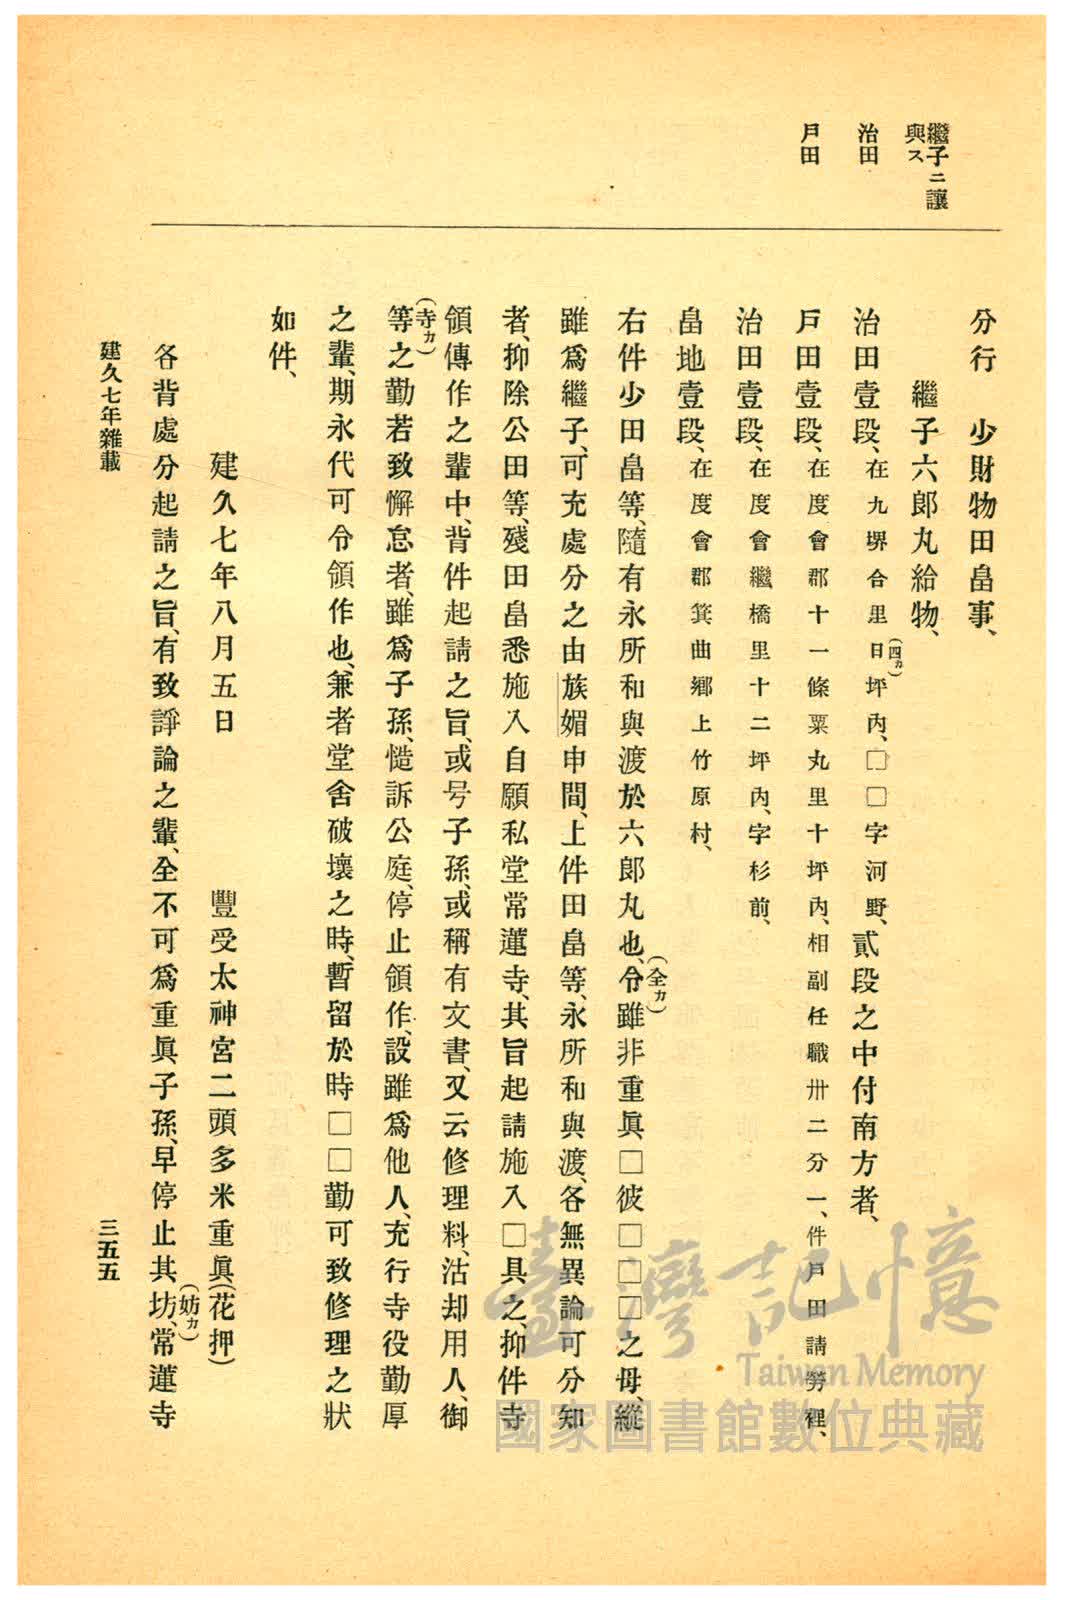 繼子ニ讓
與ス
治田
戸田
分行　少財物田畠事、
繼子六郎丸給物、
治田壹段、在九堺合里日(四カ)坪內、□□字河野、貳段之中付南方者、
戸田壹段、在度會郡十一條粟丸里十坪內、相副任職卅二分一、件戸田請勞裡、
治田壹段、在度會繼橋里十二坪內、字杉前、
畠地壹段、在度會郡箕曲鄉上竹原村、
右件少田畠等、隨有永所和與渡於六郎丸也、令(全カ)雖非重眞□彼□□□之母、縱
雖爲繼子、可充處分之由族媚申間、上件田畠等、永所和與渡、各無異論可分知
者、抑除公田等、殘田畠悉施入自願私堂常蓮寺、其旨起請施入□具之、抑件寺
領傳作之輩中、背件起請之旨、或号子孫、或稱有文書、又云修理料、沽却用人、御
等(寺カ)之勤若致懈怠者、雖爲子孫、愷訴公庭、停止領作、設雖爲他人、充行寺役勤厚
之輩、期永代可令領作也、兼者堂舍破壞之時、暫留於時□□勤可致修理之狀
如件、
建久七年八月五日　豐受太神宮二頭多米重眞(花押)
各背處分起請之旨、有致諍論之輩、全不可爲重眞子孫、早停止其坊(妨カ)、常蓮寺
建久七年雜載
三五五
臺灣記憶
Taiwan Memory
國家圖書館數位典藏